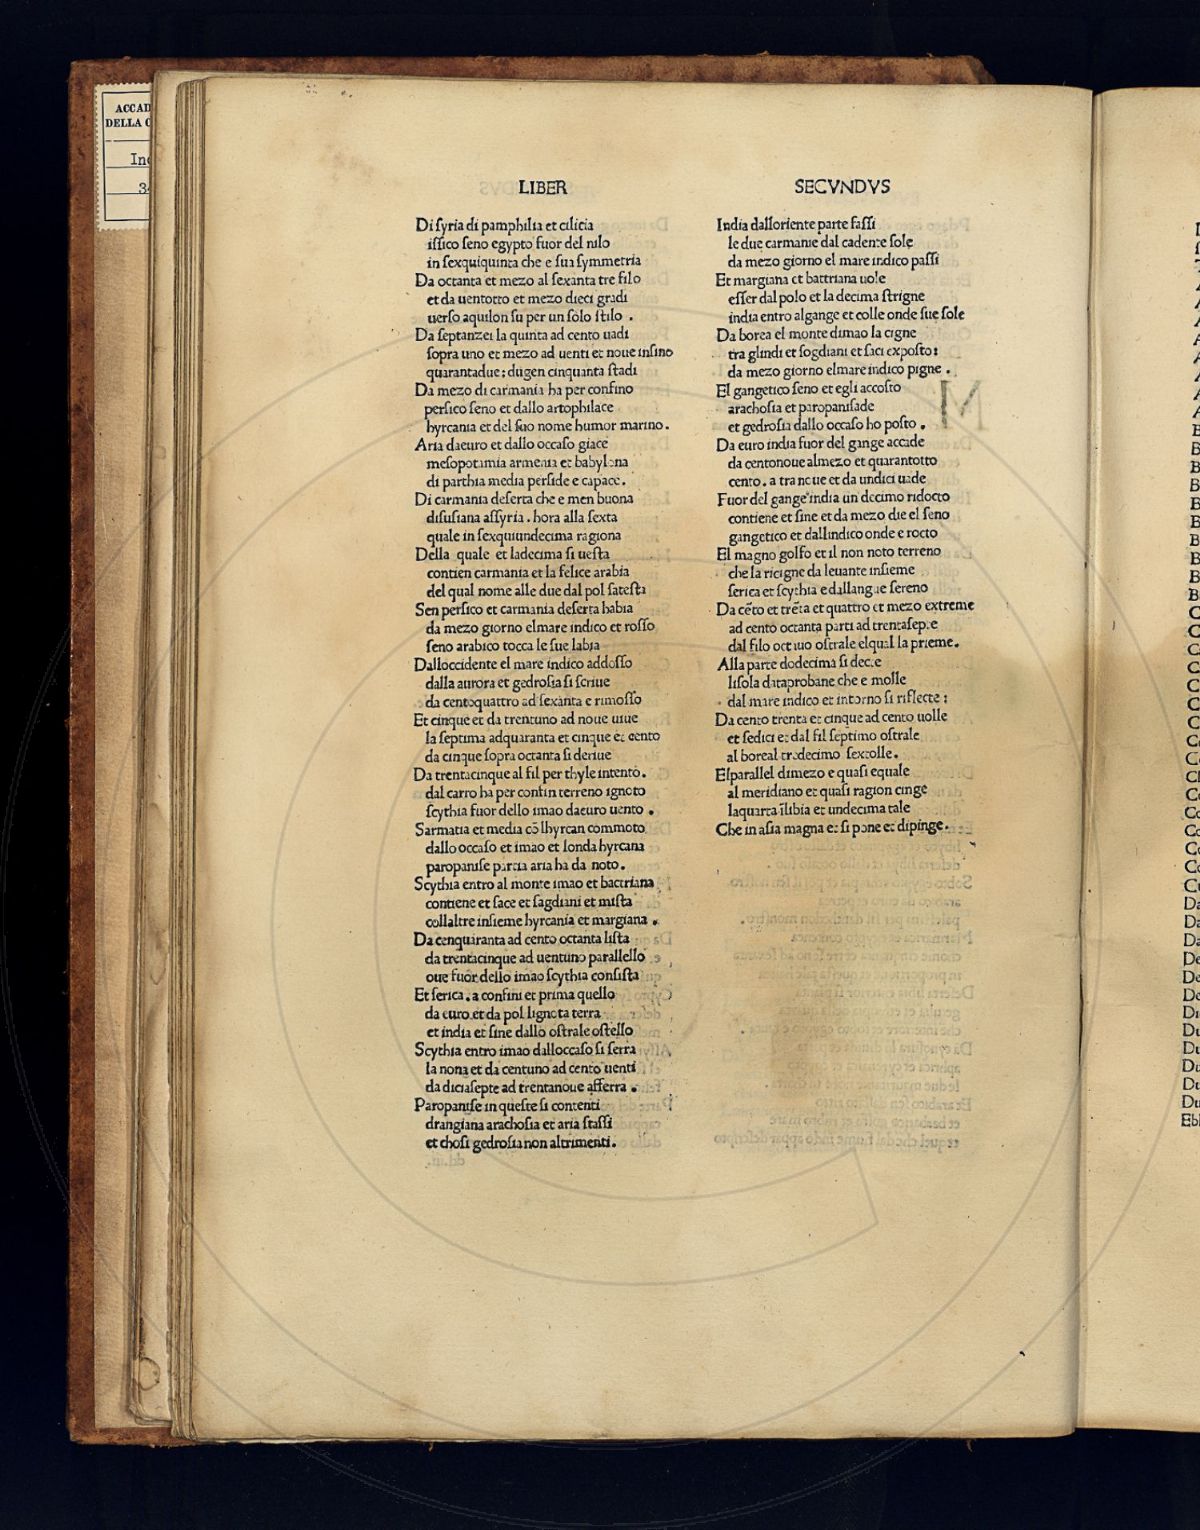 ACCAD
DELLA C
Inc
34
LIBER
Di ſyria di pamphilia et cilicia
iſſico ſeno egypto fuor del nilo
in ſexquiquinta che e ſua ſymmetria
Da octanta et mezo al ſexanta tre filo
et da uentotto et mezo dieci gradi
uerſo aquilon ſu per un ſolo ſtilo .
Da ſeptanzei la quinta ad cento uadi
ſopra uno et mezo ad uenti et noue inſino
quarantadue: dugen cinquanta ſtadi
Da mezo di carmania ha per confino
perſico ſeno et dallo artophilace
hyrcania et del ſuo nome humor marino.
Aria daeuro et dallo occaſo giace
meſopotamia armenia et babylona
di parthia media perſide e capace.
Di carmania deſerta che e men buona
diſuſiana aſſyria . hora alla ſexta
quale in ſexquiundecima ragiona
Della quale et ladecima ſi ueſta
contien carmania et la felice arabia
del qual nome alle due dal pol ſateſta
Sen perſico et carmania deſerta habia
da mezo giorno elmare indico et roſſo
ſeno arabico tocca le ſue labia
Dalloccidente el mare indico addoſſo
dalla aurora et gedroſia ſi ſcriue
da centoquattro ad ſexanta e rimoſſo
Et cinque et da trentuno ad noue uiue
la ſeptima adquaranta et cinque et cento
da cinque ſopra octanta ſi deriue
Da trentacinque al fil per thyle intento.
dal carro ha per confin terreno ignoto
ſcythia fuor dello imao daeuro uento .
Sarmatia et media cō lhyrcan commoto
dallo occaſo et imao et londa hyrcana
paropaniſe partia aria ha da noto .
Scythia entro al monte imao et bactriana
contiene et ſace et ſagdiani et miſta
collaltre inſieme hyrcania et margiana .
Da cenquiranta ad cento octanta liſta
da trentacinque ad uentuno parallello
oue fuor dello imao ſcythia conſiſta
Et ſerica . a confini et prima quello
da euro et da pol lignota terra
et india et ſine dallo oſtrale oſtello
Scythia entro imao dalloccaſo ſi ſerra
la nona et da centuno ad cento uenti
da diciaſepte ad trentanoue afferra .
Paropaniſe in queſte ſi contenti
drangiana arachoſia et aria ſtaſſi
et choſi gedroſia non altrimenti.
SECVNDVS
India dalloriente parte faſſi
le due carmanie dal cadente ſole
da mezo giorno el mare indico paſſi
Et margiana et battriana uole
eſſer dal polo et la decima ſtrigne
india entro algange et colle onde ſue ſole
Da borea el monte dimao la cigne
tra glindi et ſogdiani et ſaci expoſto:
da mezo giorno elmare indico pigne .
El gangetico ſeno et egli accoſto
arachoſia et paropaniſade
et gedroſia dallo occaſo ho poſto .
Da euro india fuor del gange accade
da centonoue almezo et quarantotto
cento . a tra noue et da undici uade
Fuor del gange india un decimo ridocto
contiene et ſine et da mezo die el ſeno
gangetico et dallindico onde e rocto
El magno golfo et il non noto terreno
che la ricigne da leuante inſieme
ſerica et ſcythia e dallangue ſereno
Da cēto et trēta et quattro et mezo extreme
ad cento octanta parti ad trentaſepte
dal filo octauo oſtrale elqual la prieme.
Alla parte dodecima ſi decte
liſola dataprobane che e molle
dal mare indico et intorno ſi riflecte :
Da cento trenta et cinque ad cento uolle
et ſedici et dal fil ſeptimo oſtrale
al boreal tredecimo ſextolle.
Elparallel dimezo e quaſi equale
al meridiano et quaſi ragion cinge
laquarta ĩlibia et undecima tale
Che in aſia magna et ſi pone et dipinge.